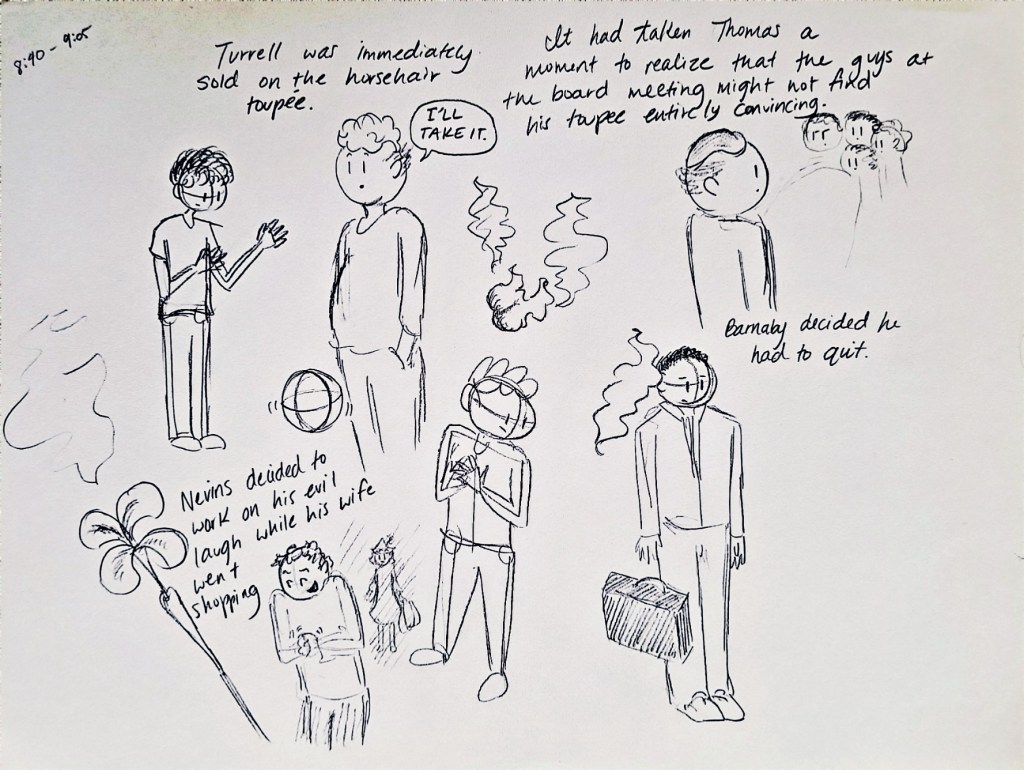 8:40 - 9:05
Turrell was immediately
sold on the horsehair
toupée.
I'LL
TAKE IT.
It had taken Thomas a
moment to realize that the guys at
the board meeting might not find
his toupee entirely convincing.
Barnaby decided he
had to quit.
Nevins decided to
work on his evil
laugh while his wife
went
shopping